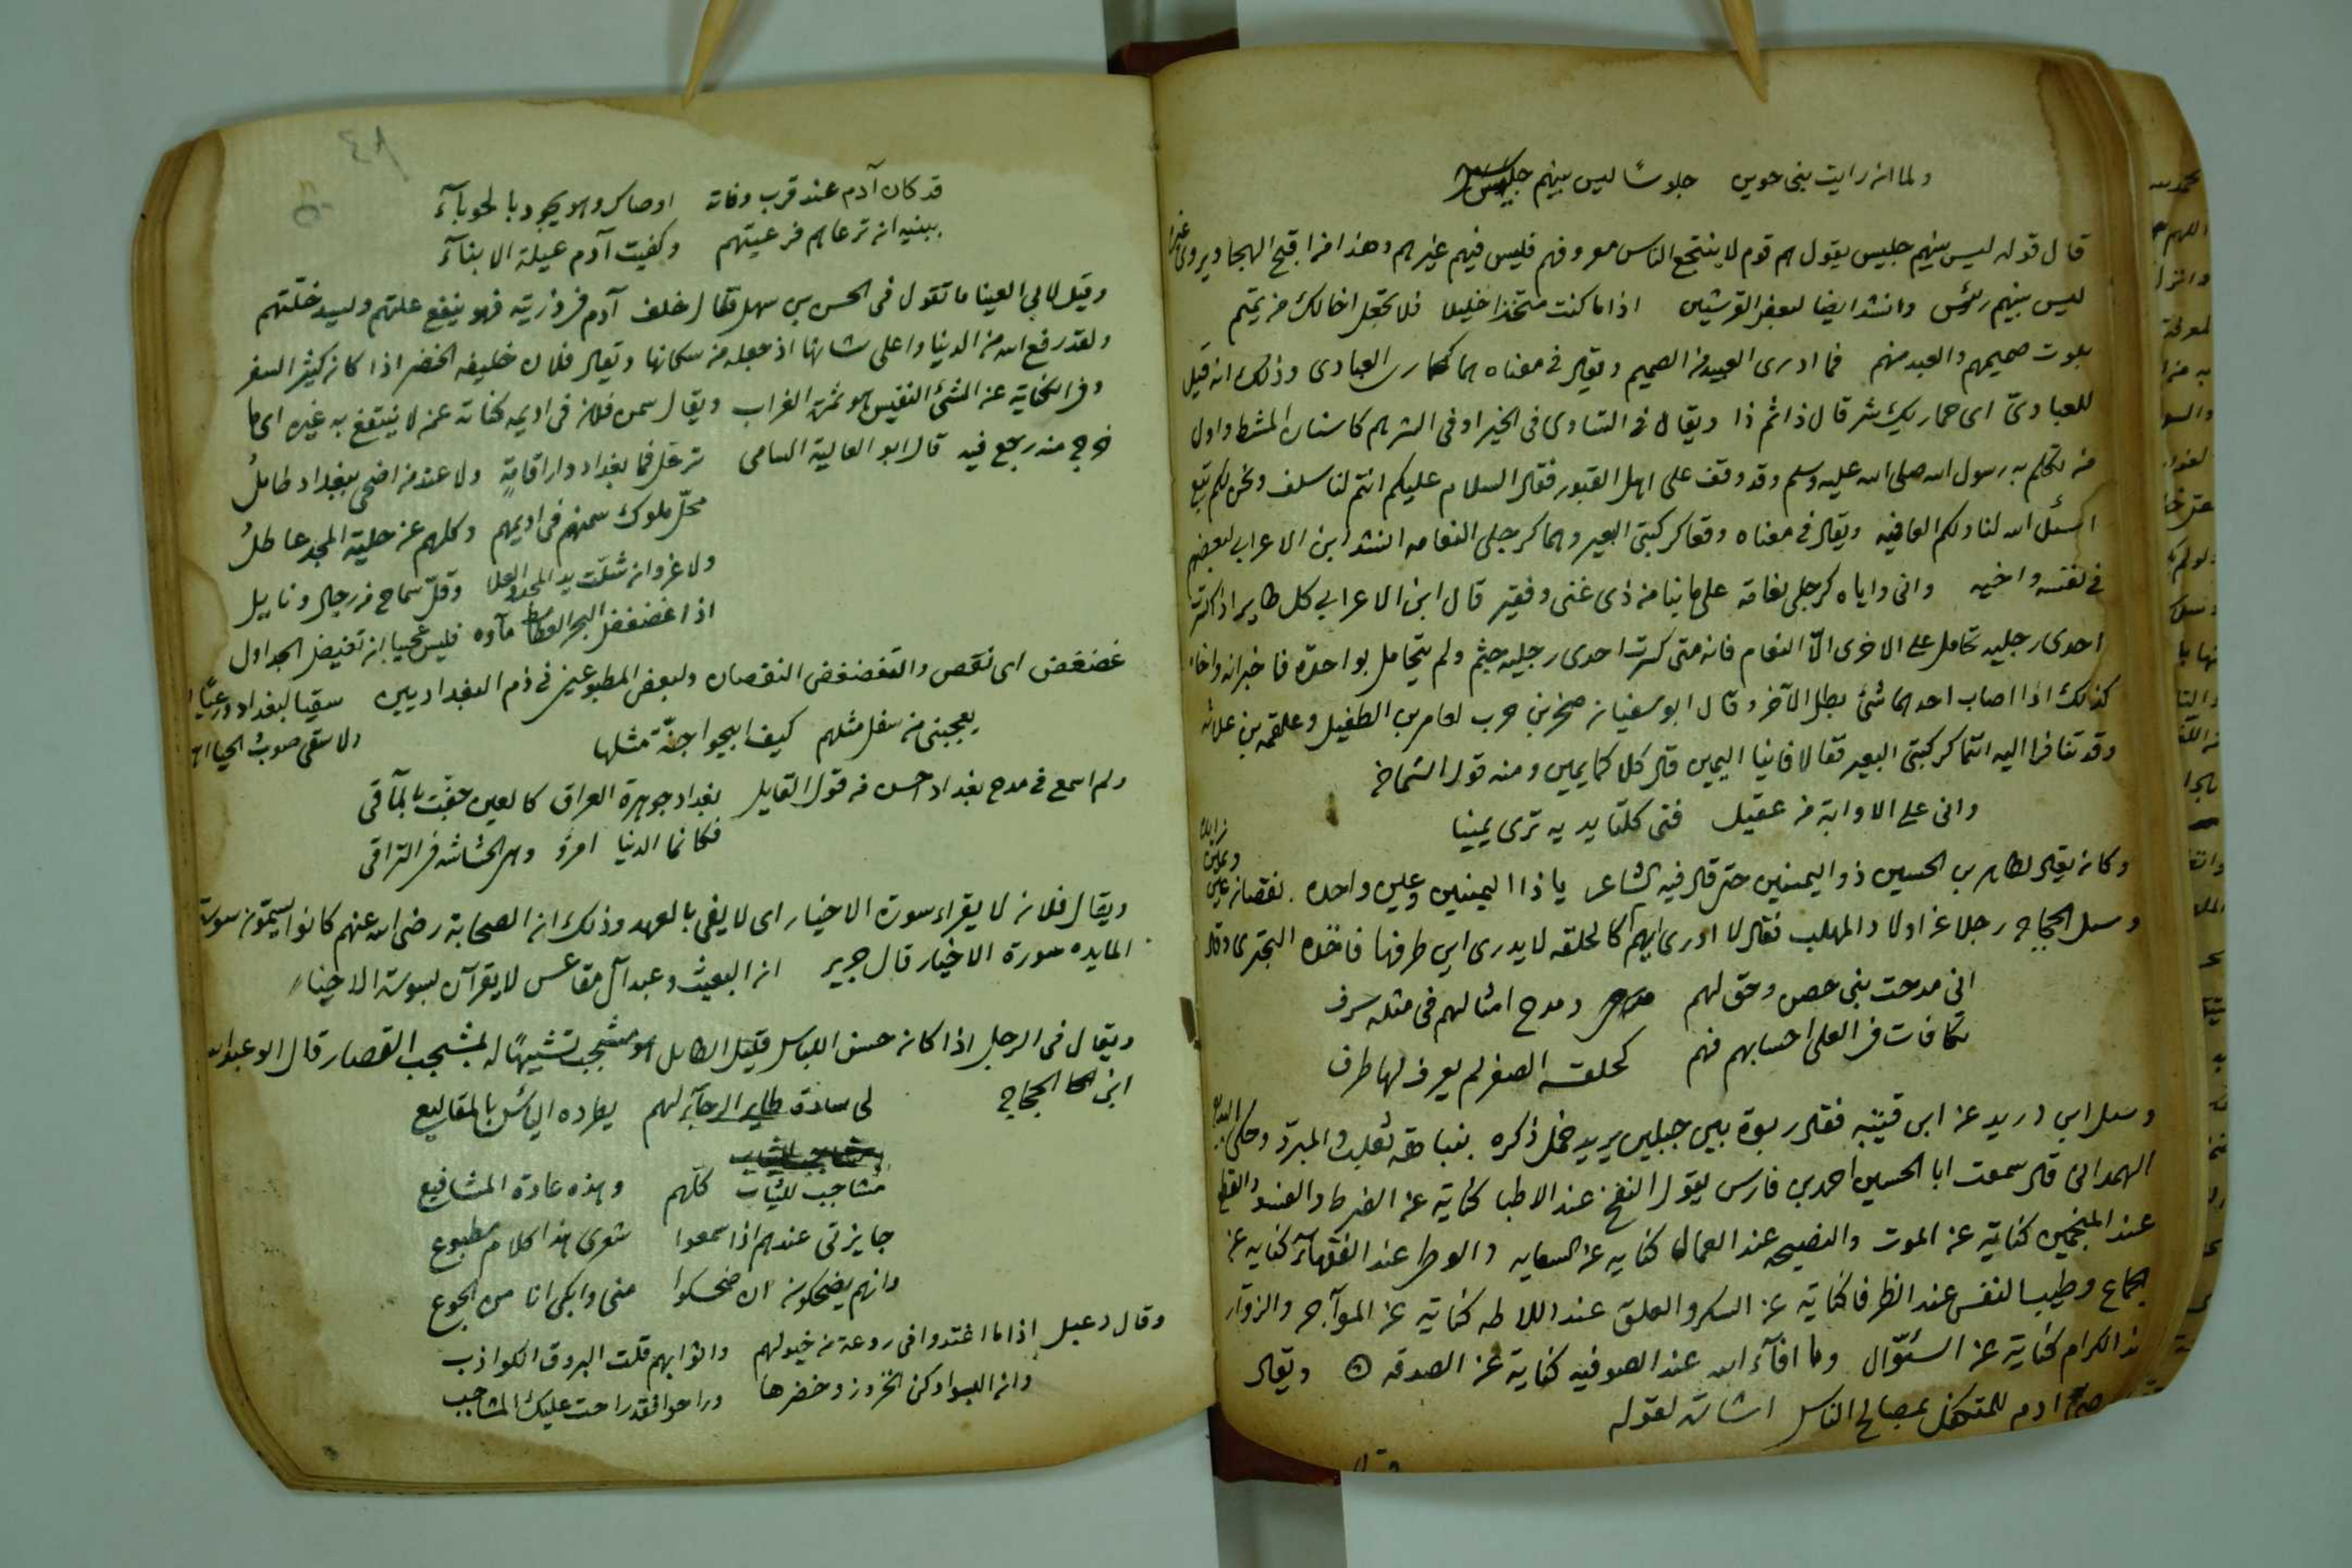 ولما ان رايت بني جوين جلوسا ليس بينهم جليس
قال قوله ليس بينهم جليس يقول هم قوم لا ينتجع الناس معروفهم فليس فيهم غيرهم وهذا من اقبح الهجا ويروى
ليس بينهم رئيس وانشد ايضا لبعض القرشيين اذا ما كنت متخذا خليلا فلا تجعل اخا لك من تميم
بلوت صميمهم والعبد منهم فما ادرى العبيد من الصميم ويقال في معناه هما كحمارى العبادى وذلك انه قيل
للعبادىّ اى حماريك شر قال ذا ثم ذا ويقال في التساوى في الخير او في الشر هم كاسنان المشط واول
من تكلم به رسول الله صلى الله عليه وسلم وقد وقف على اهل القبور فقال السلام عليكم انتم لنا سلف ونحن لكم تبع
اسئل الله لنا ولكم العافيه ويقال في معناه وقعا كركبتى البعير وهما كرجلى النعامه انشد ابن الاعرابي لبعضهم
في نفسه واخيه وانى واياه كرجلى نعامة على ما بنا من ذى غنى وفقير قال ابن الاعرابي كل طاير اذا كسرت
احدى رجليه تحامل على الاخرى الّا النعام فانه متى كسرت احدى رجليه جثم ولم يتحامل بواحدة فاخبر انه واخاه
كذلك اذا اصاب احدهما شئ بطل الآخر وقال ابو سفيان صخر بن حرب لعامر بن الطفيل وعلقمه بن علاثه
وقد تنافرا اليه انتما كركبتى البعير فقالا فاينا اليمين قال كلاكما يمين ومنه قول الشماخ
وانى على الاوابة من عقيل فتى كلتا يديه ترى يمينا
وكان يقال لطاهر بن الحسين ذو اليمينين حتى قال فيه الشاعر يا ذا اليمينين وعين واحده نقصان عين
وسئل الحجاج رجلا عن اولاد المهلب فقال لا ادرى ايهم كالحلقه لا يدرى اين طرفها فاخذه البحترى وقال
انى مدحت بنى حصن وحق لهم ومدح امثالهم في مثله سرف
تكافات في العلى احسابهم فهم كحلقة الصفر لم يعرف لها طرف
وسئل ابن دريد عن ابن قتيبه فقال ربوة بين جبلين يريد خمل ذكره بنباهة ثعلب والمبرّد وحكى البديع
الهمدانى قال سمعت ابا الحسين احمد بن فارس يقول النفخ عند الاطبا كناية عن الضرط والفسو والقطع
عند المنجمين كناية عن الموت والنصيحه عند العمال كنايه عن السعايه والوطى عند الفقهآء كنايه عن
الجماع وطيب النفس عند الظرفا كناية عن السكر والعلق عند اللاطه كناية عن المواجر والزوّار
عند الكرام كناية عن السئوّال وما افآء الله عند الصوفيه كناية عن الصدقه ويقال
وصى آدم للمتكفل بمصالح الناس اشارة لقوله
قد كان آدم عند قرب وفاته اوصاك وهو يجود بالحوبآء
ببنيه ان ترعاهم فرعيتهم وكفيت آدم عيلة الابنآء
وقيل لابي العينا ما تقول في الحسن بن سهل فقال خلف آدم في ذريته فهو ينفع علتهم ويسد خلّتهم
ولقد رفع الله من الدنيا واعلى شانها اذ جعله من سكانها ويقال فلان خليفه الخضر اذا كان كثير السفر
وفي الكناية عن الشئ النفيس هو ثمرة الغراب ويقال سمن فلان في اديمه كناية عن من لا ينتفع به غيره اى ما
خرج منه رجع فيه قال ابو العالية السامى ترحّل فما بغداد دار اقامة ولا عند من اضحى ببغداد طايلُ
محلّ ملوك سمنهم في اديمهم وكلهم عن حلية المجد عاطلُ
ولا غرو ان شلّت يد المجد والعلا وقلّ سماح من رجال ونايل
اذا غضغض البحر الغطامط مآوه فليس عجيبا ان تغيض الجداول
غضغض اى نقص والتغضغض النقصان ولبعض المطبوعين في ذم البغداديين سقيا لبغداد ورعيًا
ولا سقى صوب الحيا اهلها يعجبنى من سفل مثلهم كيف ابيحوا جنّة مثلها
ولم اسمع في مدح بغداد احسن من قول القايل بغداد جوهرة العراق كالعين حفّت بالمآقى
فكانما الدنيا امرؤ وهى الحشاشه في التراقى
ويقال فلان لا يقراء سورة الاخيار اى لا يفى بالعهد وذلك ان الصحابة رضى الله عنهم كانوا يسمون سورة
المايده سورة الاخيار قال جرير ان البعيث وعبد آل مقاعس لا يقرآن بسورة الاخيار
ويقال في الرجل اذا كان حسن اللباس قليل الطايل هو مشجب تشبيهًا له بمشجب القصار قال ابو عبد الله
ابن الحجاج لى سادة طاير السرور لهم يطرده الياس بالمقاليع
مشاجب للثياب كلّهم وهذه عادة المشافيع
جايزتى عندهم اذا سمعوا شعرى هذا كلام مطبوع
وانهم يضحكون ان ضحكوا منى وابكى انا من الجوع
وقال دعبل اذا ما اغتدوا في روعة من خيولهم واثوابهم قلت البروق الكواذب
وان لبسوا دكن الخزوز وخضرها وراحوا فقد راحت عليك المشاجب